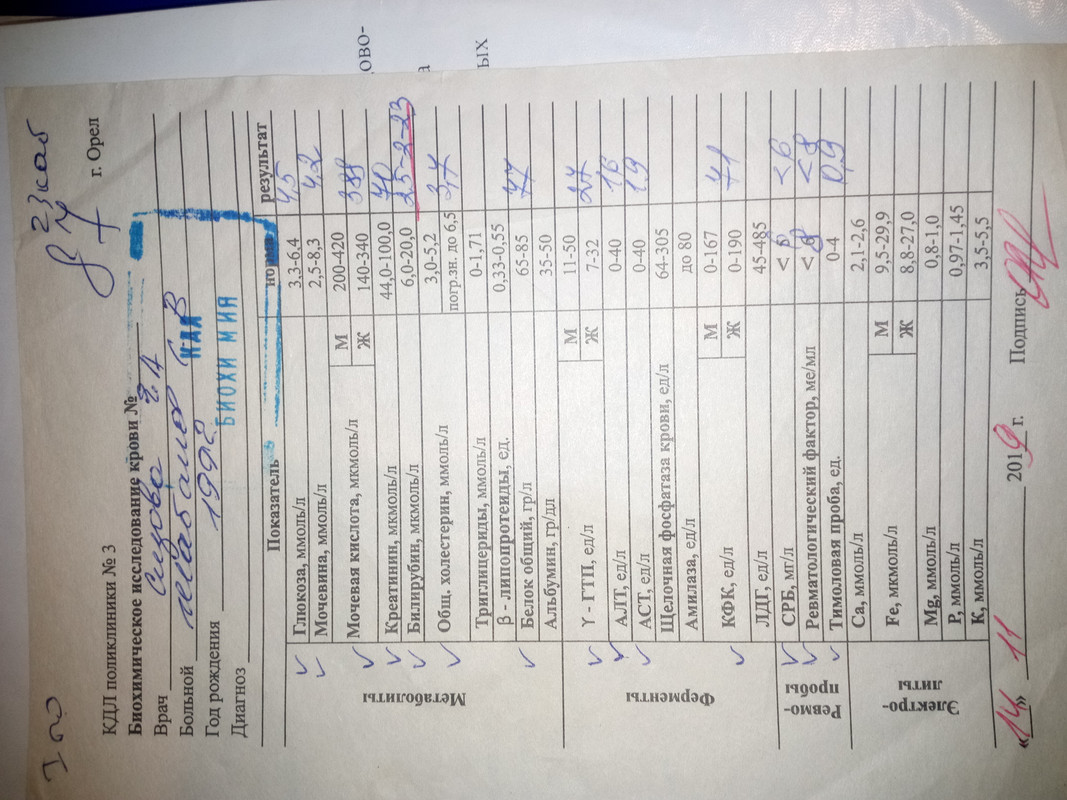 23 каб
КДЛ поликлиники № 3
г. Орел
Биохимическое исследование крови №
Врач
Больной
Год рождения 1992
Диагноз
БИОХИМИЯ
Показатель норма результат
Метаболиты
✓ Глюкоза, ммоль/л 3,3-6,4 4,5
✓ Мочевина, ммоль/л 2,5-8,3 4,2
✓ Мочевая кислота, мкмоль/л М 200-420 388
Ж 140-340
✓ Креатинин, мкмоль/л 44,0-100,0
✓ Билирубин, мкмоль/л 6,0-20,0 25-2-23
✓ Общ. холестерин, ммоль/л 3,0-5,2 3,7
погр.зн. до 6,5
Триглицериды, ммоль/л 0-1,71
β - липопротеиды, ед. 0,33-0,55
✓ Белок общий, гр/л 65-85 77
Альбумин, гр/дл 35-50
Ферменты
✓ γ - ГТП, ед/л М 11-50 27
Ж 7-32
✓ АЛТ, ед/л 0-40 16
✓ АСТ, ед/л 0-40 19
Щелочная фосфатаза крови, ед/л 64-305
Амилаза, ед/л до 80
✓ КФК, ед/л М 0-167 71
Ж 0-190
ЛДГ, ед/л 45-485
Ревмопробы
✓ СРБ, мг/л < 6 < 6
✓ Ревматологический фактор, ме/мл < 8 < 8
✓ Тимоловая проба, ед. 0-4 0,9
Электролиты
Ca, ммоль/л 2,1-2,6
Fe, мкмоль/л М 9,5-29,9
Ж 8,8-27,0
Mg, ммоль/л 0,8-1,0
P, ммоль/л 0,97-1,45
K, ммоль/л 3,5-5,5
«14» 11 2019 г. Подпись
ОВО-
а
ЫХ